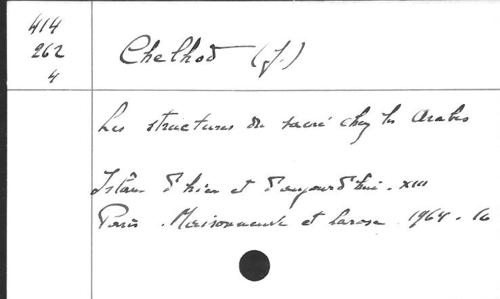 414
262
4
Chelhod (J.)
Les structures du sacré chez les Arabes
Islam d'hier et d'aujourd'hui - XIII
Paris. Maisonneuve et Larose 1964 - 16